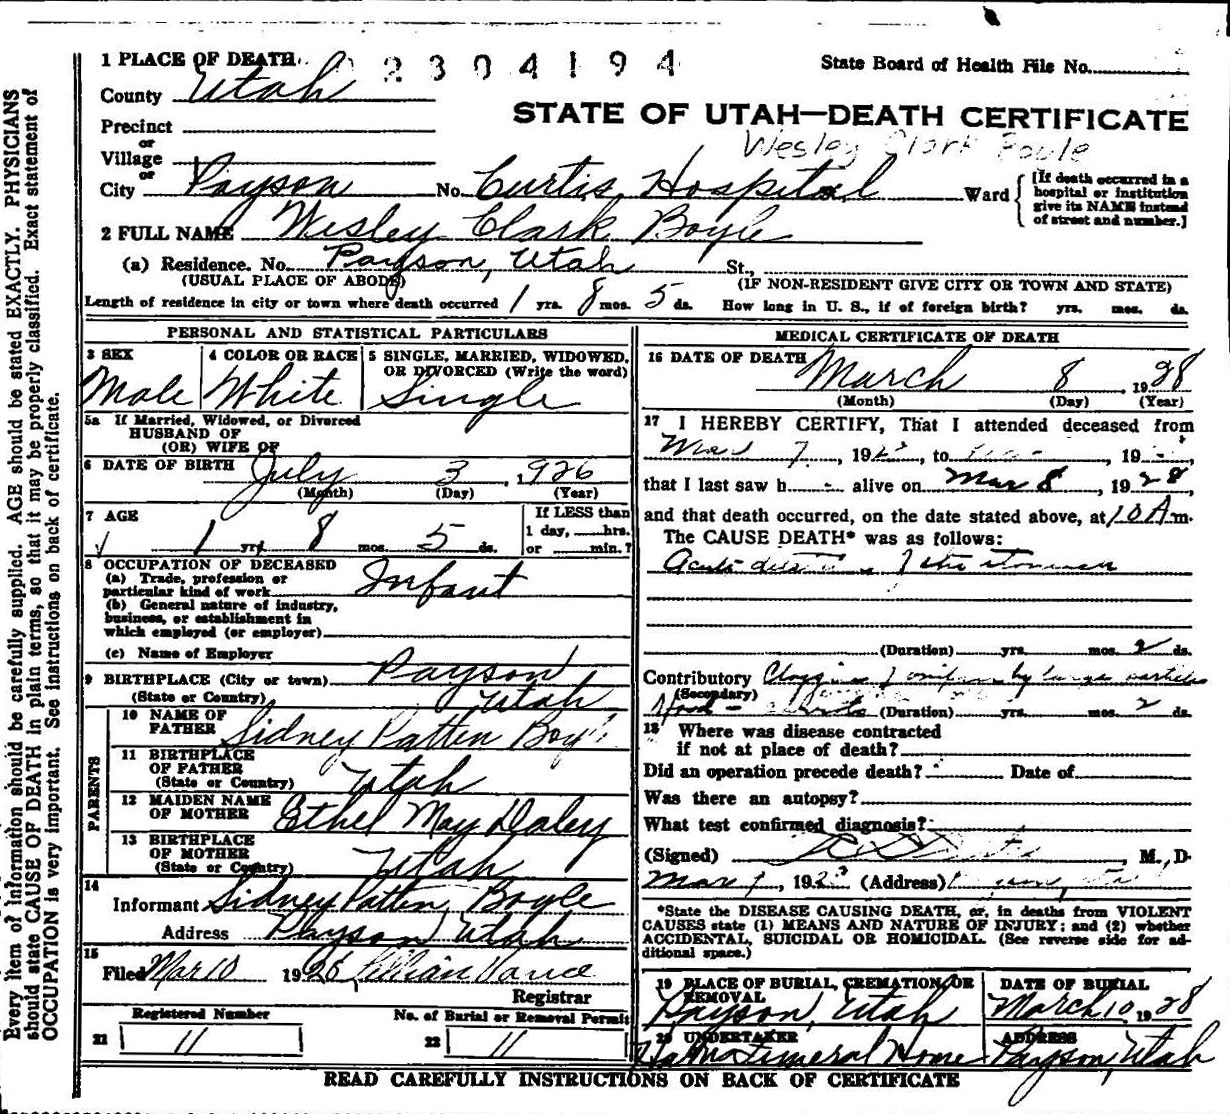 Every item of information should be carefully supplied. AGE should be stated EXACTLY. PHYSICIANS
should state CAUSE OF DEATH in plain terms, so that it may be properly classified. Exact statement of
OCCUPATION is very important. See instructions on back of certificate.
1 PLACE OF DEATH 2304194 State Board of Health File No.
County Utah
STATE OF UTAH—DEATH CERTIFICATE
Precinct
or
Wesley Clark Boyle
Village
or
City Payson No. Curtis Hospital Ward [If death occurred in a hospital or institution give its NAME instead of street and number.]
2 FULL NAME Wesley Clark Boyle
(a) Residence. No. Payson, Utah St.,
(USUAL PLACE OF ABODE) (IF NON-RESIDENT GIVE CITY OR TOWN AND STATE)
Length of residence in city or town where death occurred 1 yrs. 8 mos. 5 ds. How long in U. S., if of foreign birth? yrs. mos. ds.
PERSONAL AND STATISTICAL PARTICULARS
3 SEX Male
4 COLOR OR RACE White
5 SINGLE, MARRIED, WIDOWED, OR DIVORCED (Write the word) Single
5a If Married, Widowed, or Divorced
HUSBAND OF
(OR) WIFE OF
6 DATE OF BIRTH July 3, 1926
(Month) (Day) (Year)
7 AGE If LESS than
1 yrs. 8 mos. 5 ds. 1 day, hrs.
or min.?
8 OCCUPATION OF DECEASED
(a) Trade, profession or
particular kind of work Infant
(b) General nature of industry,
business, or establishment in
which employed (or employer)
(c) Name of Employer
9 BIRTHPLACE (City or town) Payson
(State or Country) Utah
PARENTS
10 NAME OF
FATHER Sidney Patten Boyle
11 BIRTHPLACE
OF FATHER
(State or Country) Utah
12 MAIDEN NAME
OF MOTHER Ethel May Daley
13 BIRTHPLACE
OF MOTHER
(State or Country) Utah
14
Informant Sidney Patten Boyle
Address Payson Utah
15
Filed Mar 10 1928 Lillian Vance
Registrar
Registered Number No. of Burial or Removal Permit
21 11 22 11
MEDICAL CERTIFICATE OF DEATH
16 DATE OF DEATH March 8, 1928
(Month) (Day) (Year)
17 I HEREBY CERTIFY, That I attended deceased from
Mar 7, 192 , to , 19
that I last saw h alive on Mar 8, 1928,
and that death occurred, on the date stated above, at 10 A m.
The CAUSE DEATH* was as follows:
Acute
(Duration) yrs. mos. 2 ds.
Contributory by large particles
(Secondary)
food - (Duration) yrs. mos. 2 ds.
18 Where was disease contracted
if not at place of death?
Did an operation precede death? Date of
Was there an autopsy?
What test confirmed diagnosis?
(Signed) , M. D.
Mar 9, 192 (Address)
*State the DISEASE CAUSING DEATH, or, in deaths from VIOLENT
CAUSES state (1) MEANS AND NATURE OF INJURY; and (2) whether
ACCIDENTAL, SUICIDAL OR HOMICIDAL. (See reverse side for ad-
ditional space.)
19 PLACE OF BURIAL, CREMATION OR DATE OF BURIAL
REMOVAL
Payson, Utah March 10 1928
20 UNDERTAKER ADDRESS
Funeral Home Payson, Utah
READ CAREFULLY INSTRUCTIONS ON BACK OF CERTIFICATE